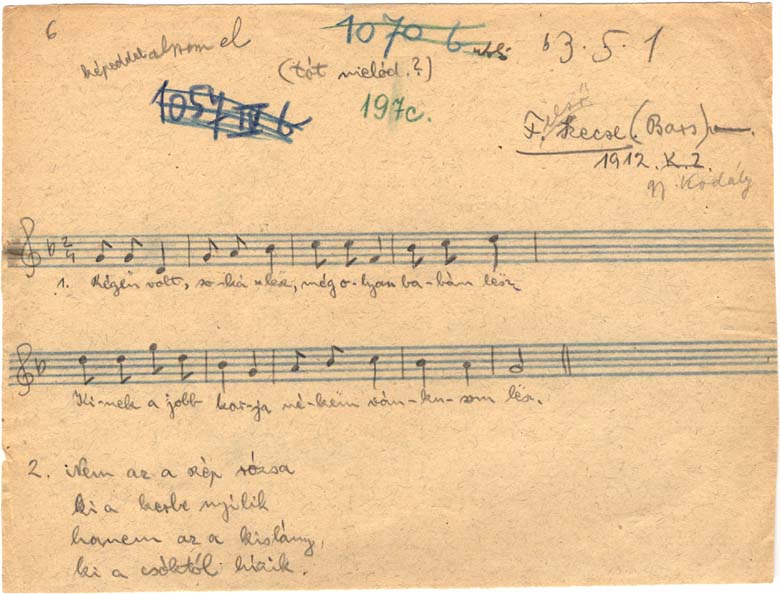 6
el
1070 b
b3.5.1
(tót melód.?)
1057 IV b
197c.
F. első
Kecse (Bars).
1912. K. Z.
gy. Kodály
2
4
1. Régën volt, so-ká lësz, még o-lyan ba-bám lësz
Ki-nek a jobb kar-ja né-këm ván-ku-som lësz.
2. Nem az a szép rózsa
ki a kerbe nyílik
hanem az a kislány,
ki a csóktól hízik.